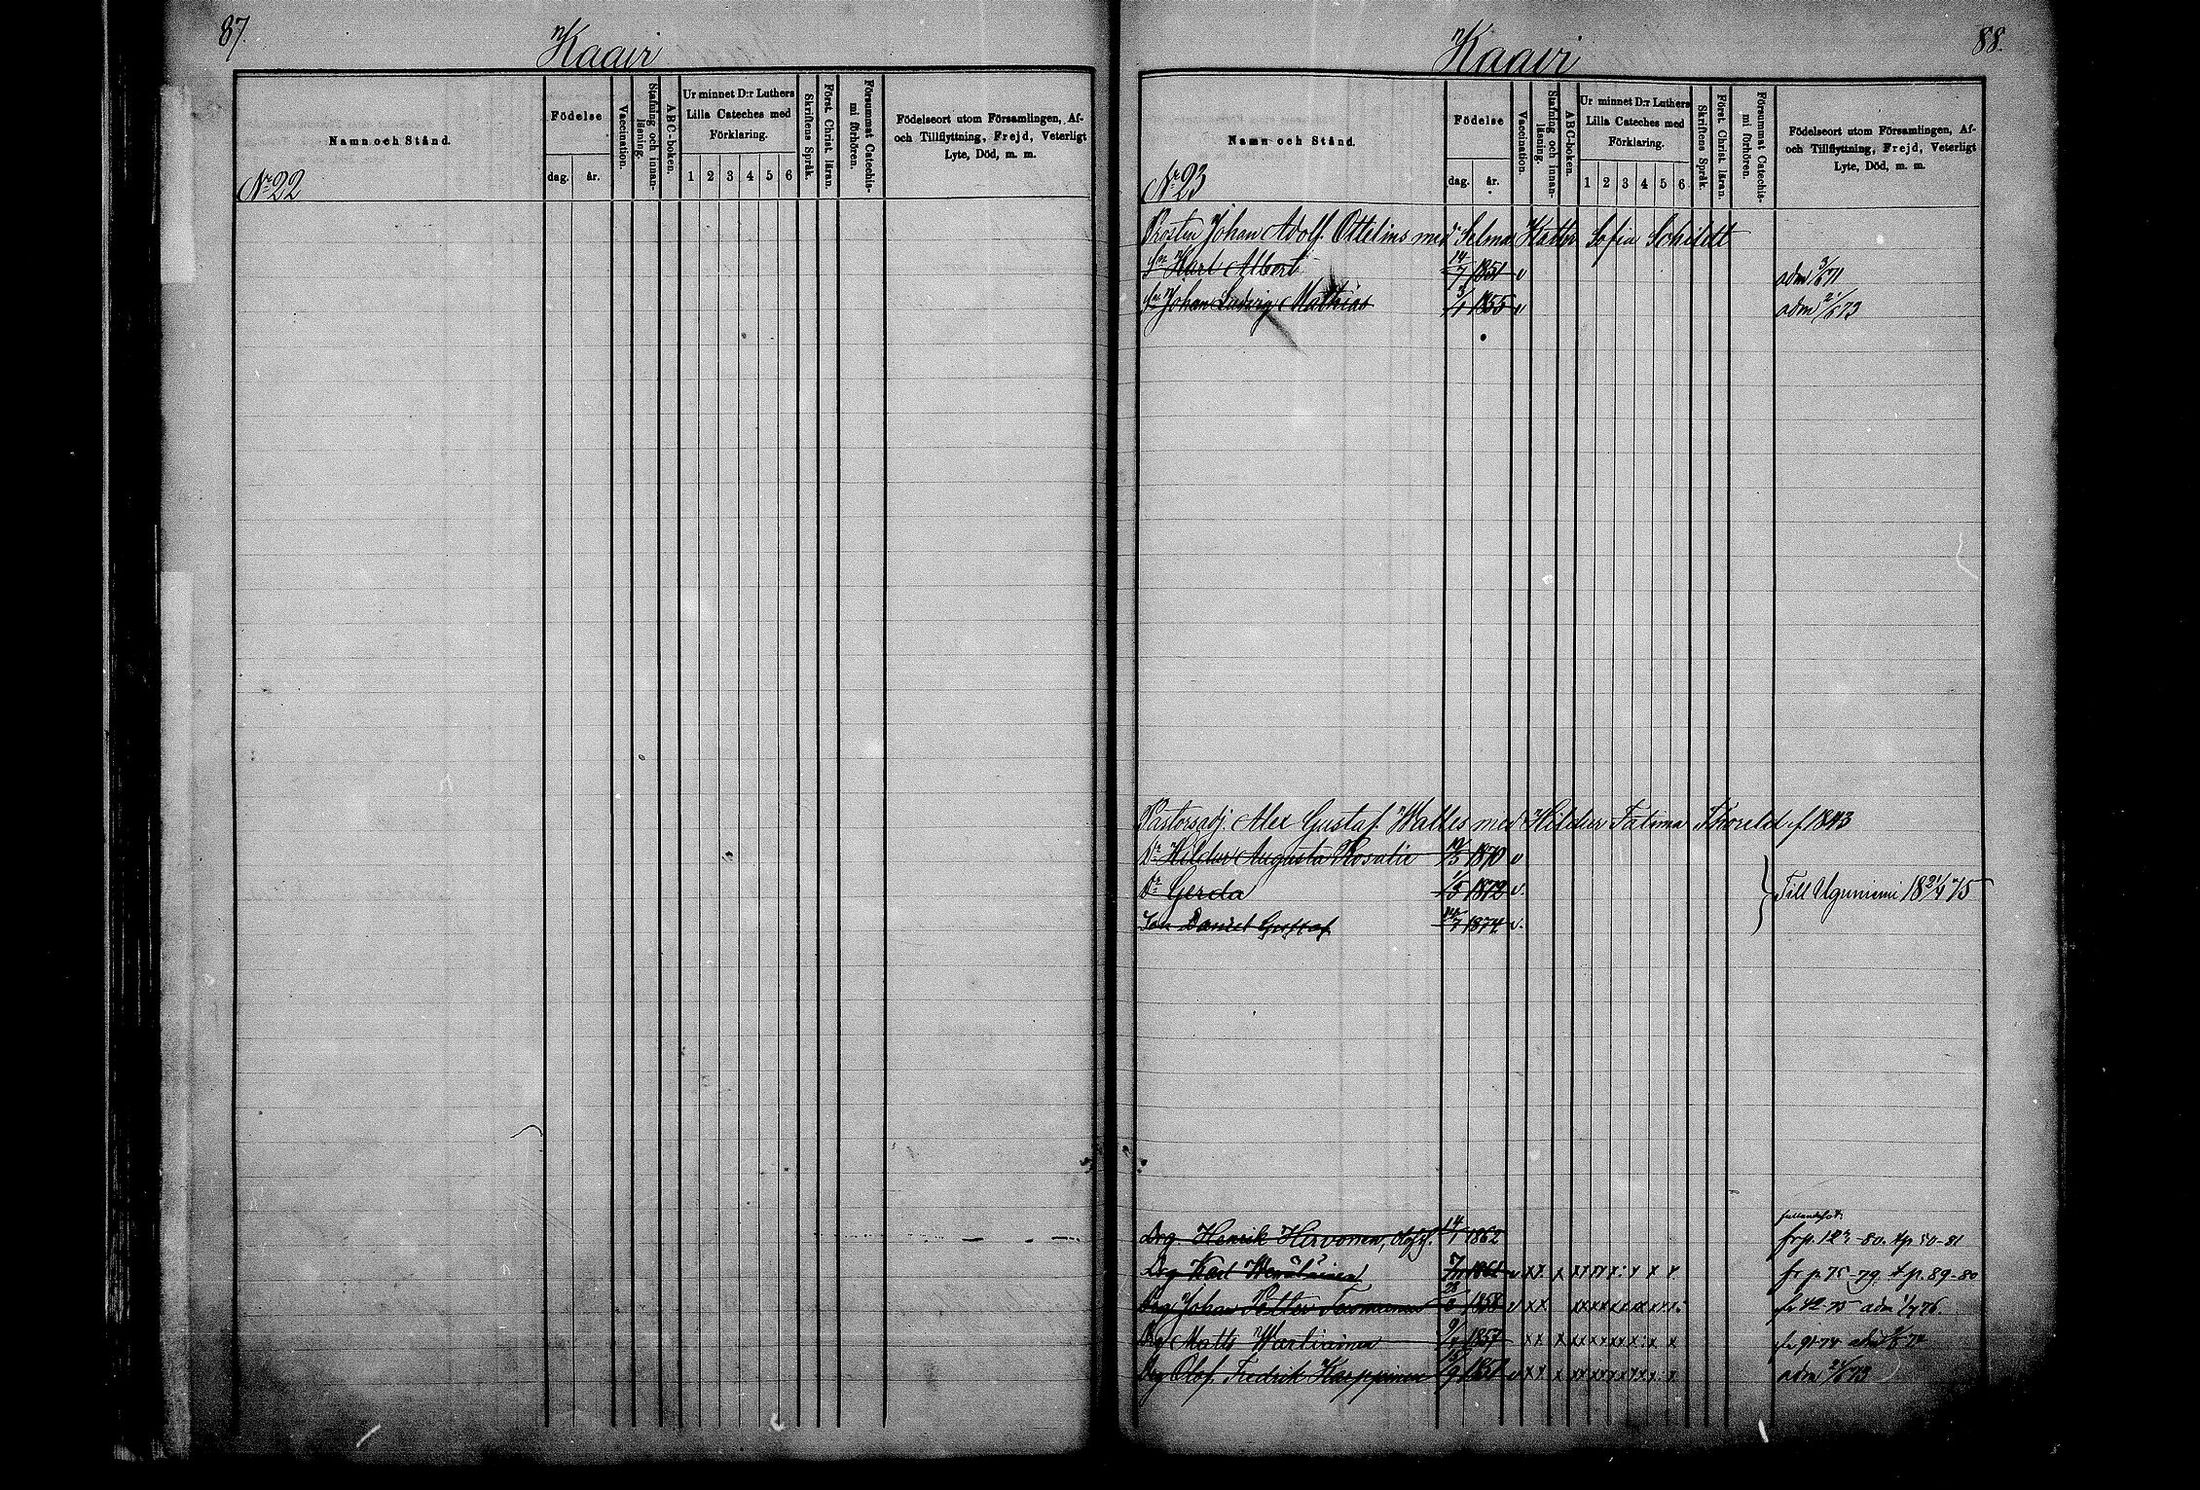 87.
Kaavi
Namn och Stånd.
Födelse
dag. år.
Vaccination.
Stafning och innanläsning.
ABC-boken.
Ur minnet D:r Luthers Lilla Cateches med Förklaring.
1 2 3 4 5 6
Skriftens Språk.
Först. Christ. läran.
Försummat Catechismi förhören.
Födelseort utom Församlingen, Af- och Tillflyttning, Frejd, Veterligt Lyte, Död, m. m.
No 22
88.
Kaavi
Namn och Stånd.
Födelse
dag. år.
Vaccination.
Stafning och innanläsning.
ABC-boken.
Ur minnet D:r Luthers Lilla Cateches med Förklaring.
1 2 3 4 5 6
Skriftens Språk.
Först. Christ. läran.
Försummat Catechismi förhören.
Födelseort utom Församlingen, Af- och Tillflyttning, Frejd, Veterligt Lyte, Död, m. m.
No 23
Prosten Johan Adolf Ottelins med Selma Sofia
Sn Karl Albert 14/7 1851 v adm 3/6 71
Sn Johan Ludvig Mathias 3/1 1855 v adm 73
Pastorsadj. Alex Gustaf Walles med Hildur Fatima Thoreld f. 1843
Dr Hildur Augusta Rosalie 1870 v
Dr Gerda 1/5 1872 v. Till Uguniemi 75
Son Daniel Gustaf 1874 v.
Drg. Henrik Hirvonen, 14/1 1862 fr p. 123-80. t p 50-81
Drg Karl 1861 v x x x fr p 75-79 t p. 89-80
Drg Johan Petter 1858 v x x fr 42-75 adm 76.
Drg Matts 9 1857 x x x fr 91-74 adm 74
Drg Olof Fredrik Karppinen 9 1857 v x x x adm 73